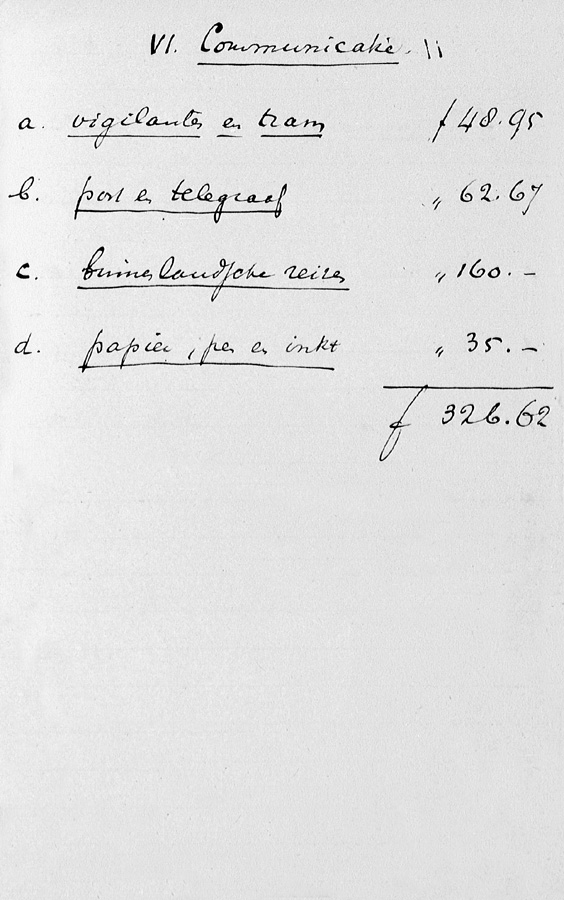 VI. Communicatie.
a. vigilantes en tram f 48.95
b. port en telegraaf „ 62.67
c. binnenlandsche reizen „ 160.–
d. papier, pen en inkt „ 35.–
f 326.62